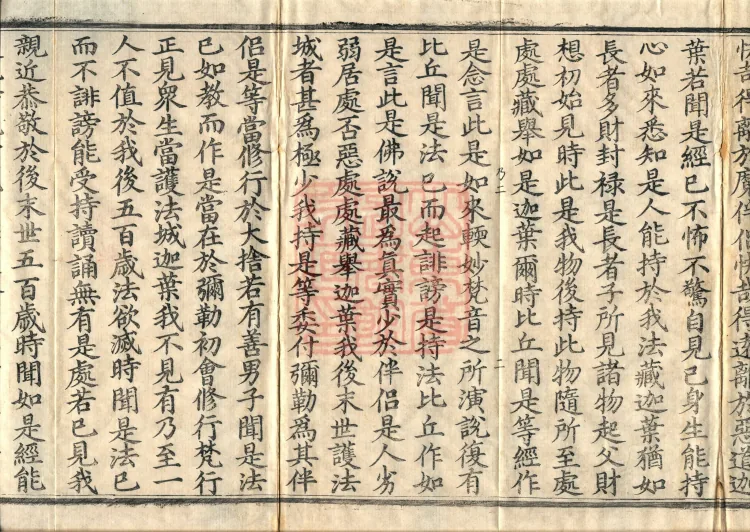 得離於魔伴侶快哉得遠離於惡道迦
葉若聞是經已不怖不驚自見己身生能持
心如來悉知是人能持於我法藏迦葉猶如
長者多財封祿是長者子所見諸物起父財
想初始見時此是我物後持此物隨所至處
處處藏舉如是迦葉爾時比丘聞是等經作
乃二
二
是念言此是如來輭妙梵音之所演說復有
比丘聞是法已而起誹謗是持法比丘作如
是言此是佛說最為真實少於伴侶是人劣
弱居處否惡處處藏舉迦葉我後末世護法
城者甚為極少我持是等委付彌勒為其伴
侶是等當修行於大捨若有善男子聞是法
已如教而作是當在於彌勒初會修行梵行
正見眾生當護法城迦葉我不見有乃至一
人不值於我後五百歲法欲滅時聞是法已
而不誹謗能受持讀誦無有是處若已見我
親近恭敬於後末世五百歲時聞如是經能